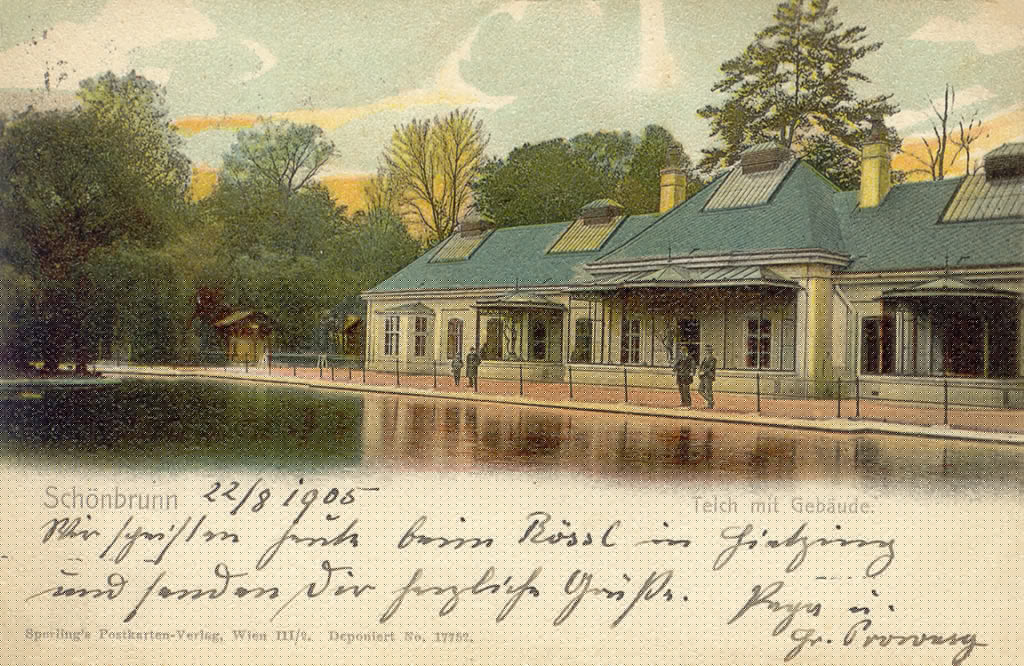 Schönbrunn 22/8 1905 Teich mit Gebäude.
Wir speisten heute beim Rössl in Hietzing
und senden Dir herzliche Grüße. Papa u.
Sperling's Postkarten-Verlag, Wien III/2. Deponiert No. 17752.